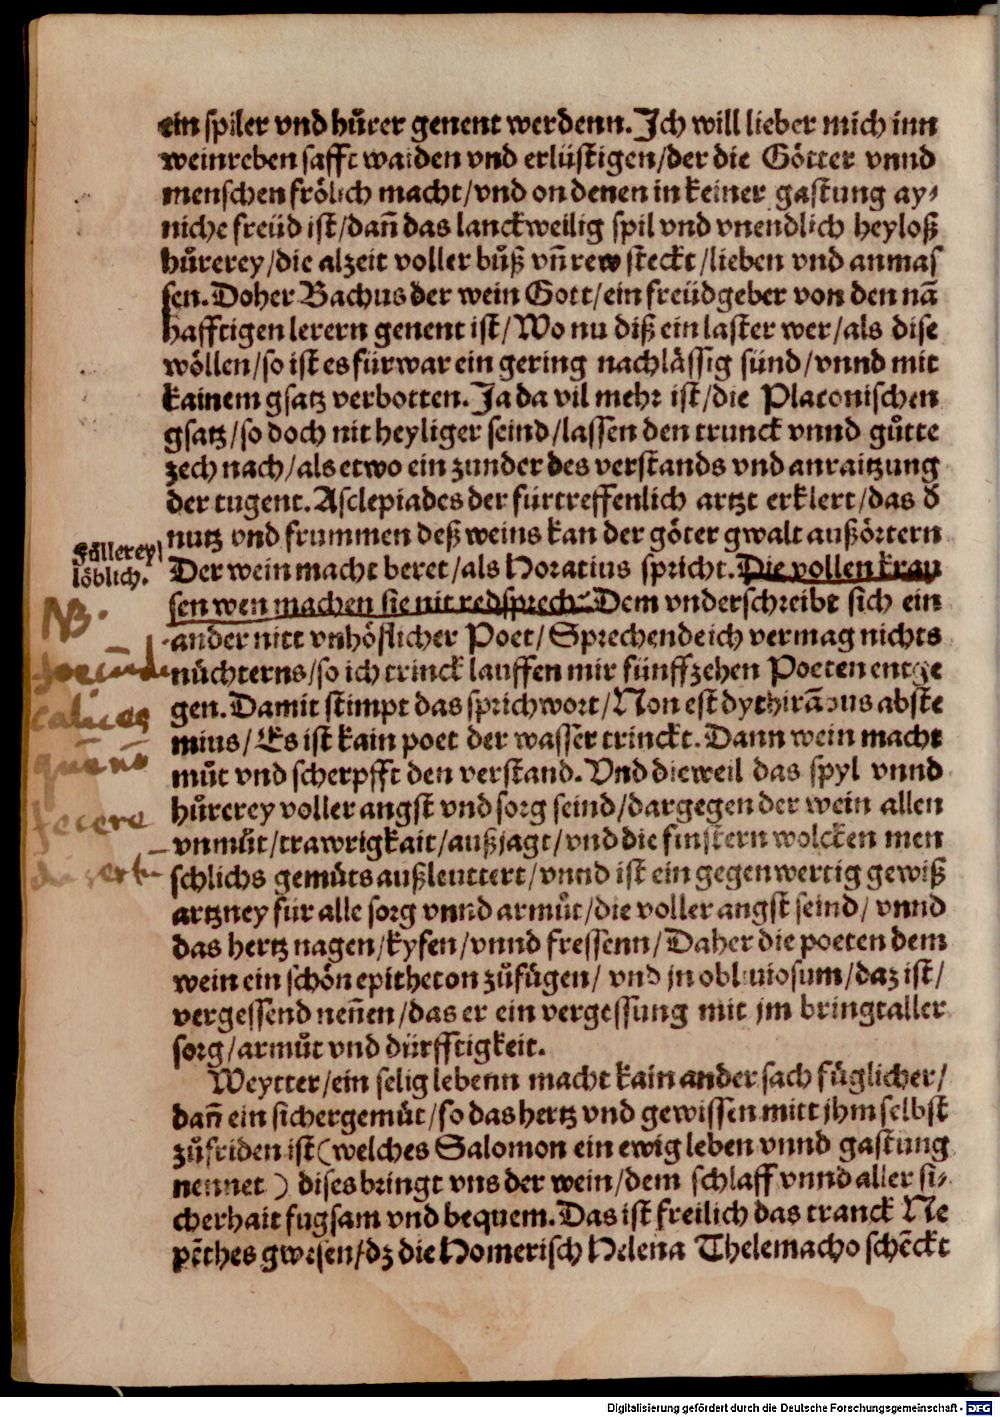 ein spiler vnd hůrer genent werdenn. Ich will lieber mich inn
weinreben safft waiden vnd erlüstigen/der die Götter vnnd
menschen frölich macht/vnd on denen in keiner gastung ay⸗
niche freüd ist/dañ das lanckweilig spil vnd vnendlich heyloß
hůrerey/die alzeit voller bůß vñ rew steckt/lieben vnd anmas
sen. Doher Bachus der wein Gott/ein freüdgeber von den nā
hafftigen lerern genent ist/Wo nu diß ein laster wer/als dise
wöllen/so ist es fürwar ein gering nachlässig sünd/vnnd mit
kainem gsatz verbotten. Ja da vil mehr ist/die Platonischen
gsatz/so doch nit heyliger seind/lassen den trunck vnnd gůtte
zech nach/als etwo ein zunder des verstands vnd anraitzung
der tugent. Asclepiades der fürtreffenlich artzt erklert/das d̄
nutz vnd frummen deß weins kan der göter gwalt außörtern
Füllerey
löblich.
Der wein macht beret/als Horatius spricht. Die vollen krau
sen wen machen sie nit redsprech: Dem vnderschreibt sich ein
NB.
foecundi
calices
quē nō
fecere
disertū
ander nitt vnhöflicher Poet/Sprechende ich vermag nichts
nüchterns/so ich trinck lauffen mir fünffzehen Poeten entge
gen. Damit stimpt das sprichwort/Non est dythirābus abste
mius/Es ist kain poet der wasser trinckt. Dann wein macht
můt vnd scherpfft den verstand. Vnd dieweil das spyl vnnd
hůrerey voller angst vnd sorg seind/dargegen der wein allen
vnmůt/trawrigkait/außjagt/vnd die finstern wolcken men
schlichs gemůts außleuttert/vnnd ist ein gegenwertig gewiß
artzney für alle sorg vnnd armůt/die voller angst seind/vnnd
das hertz nagen/kyfen/vnnd fressenn/Daher die poeten dem
wein ein schön epitheton zůfügen/vnd jn obliuiosum/daz ist/
vergessend neñen/das er ein vergessung mit jm bringt aller
sorg/armůt vnd dürfftigkeit.
Weytter/ein selig lebenn macht kain ander sach füglicher/
dañ ein sicher gemüt/so das hertz vnd gewissen mitt jhm selbst
zůfriden ist (welches Salomon ein ewig leben vnnd gastung
nennet) dises bringt vns der wein/dem schlaff vnnd aller si⸗
cherhait fugsam vnd bequem. Das ist freilich das tranck Ne
pēthes gwesen/dz die Homerisch Helena Thelemacho schēckt
Digitalisierung gefördert durch die Deutsche Forschungsgemeinschaft - DFG